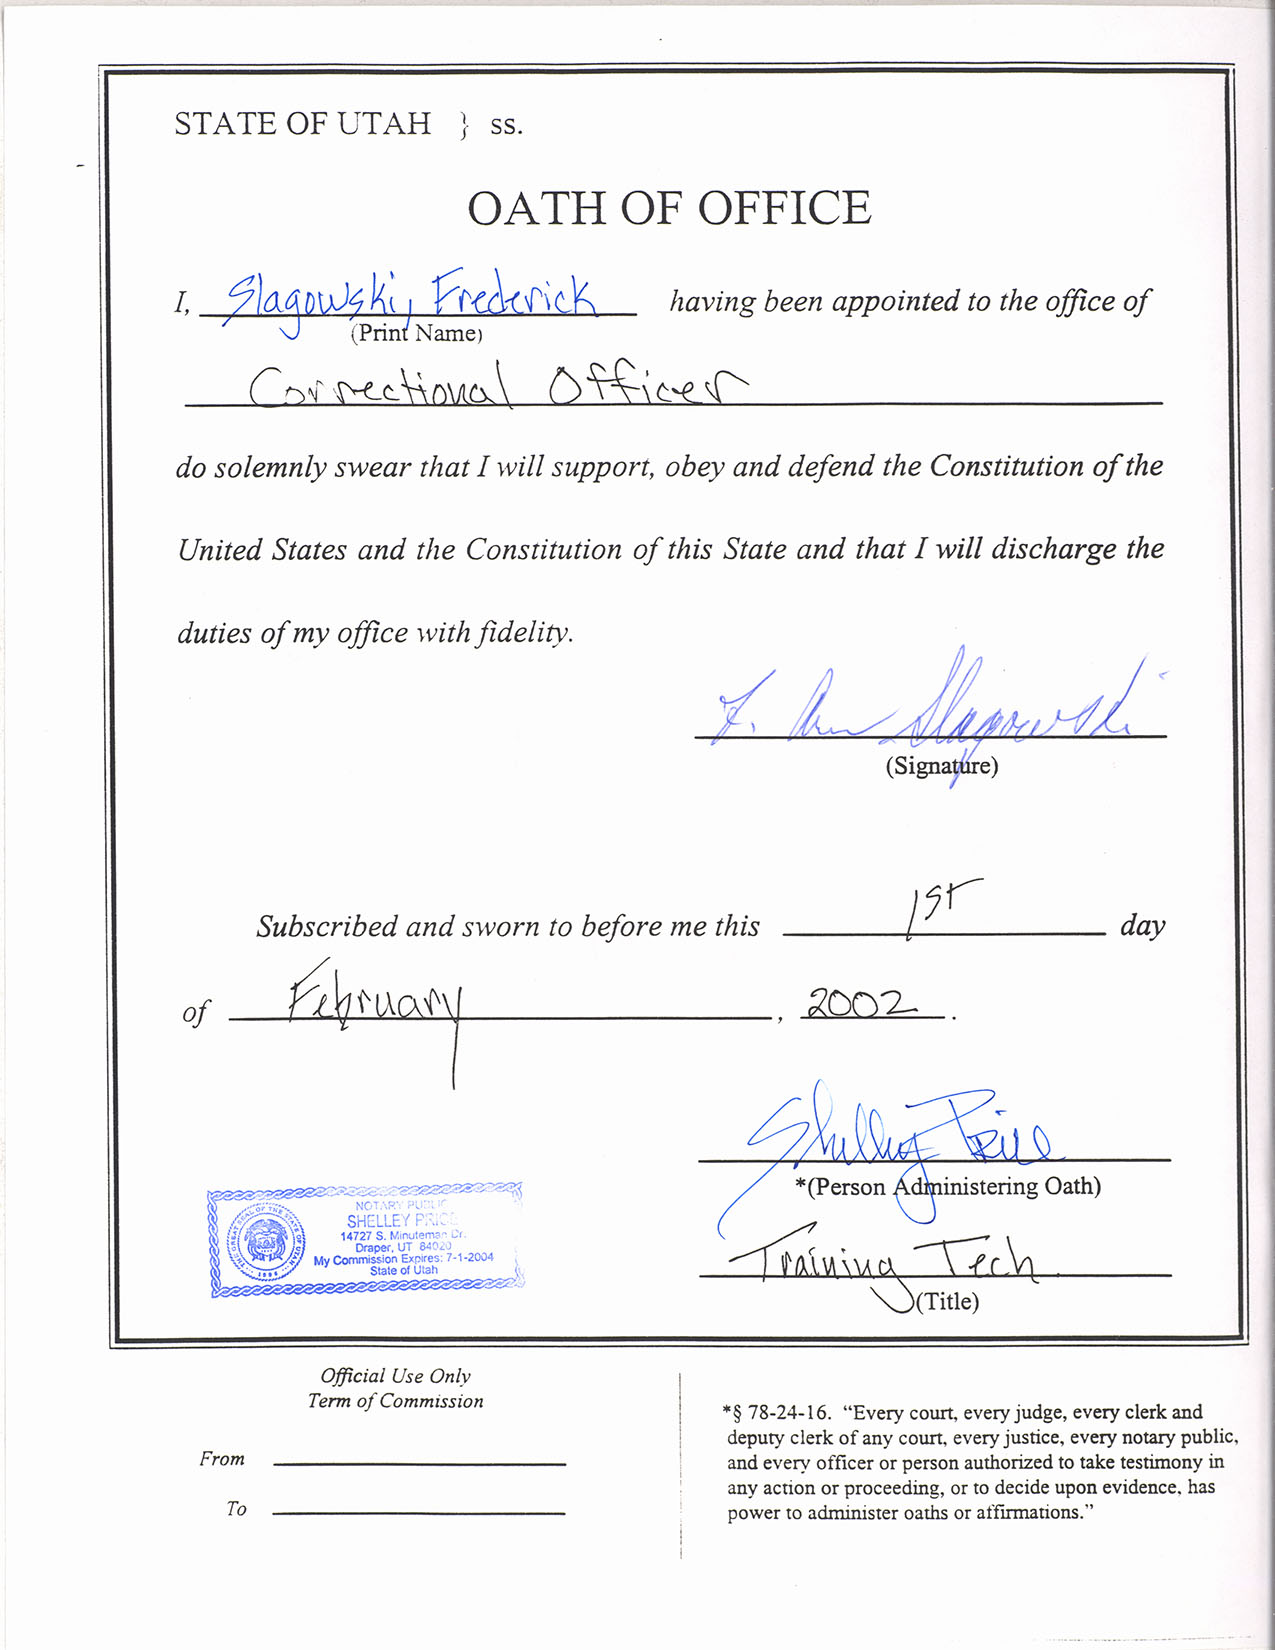 STATE OF UTAH } ss.
OATH OF OFFICE
I, Slagowski, Frederick having been appointed to the office of
(Print Name)
Correctional Officer
do solemnly swear that I will support, obey and defend the Constitution of the
United States and the Constitution of this State and that I will discharge the
duties of my office with fidelity.
F. Ann Slagowski
(Signature)
Subscribed and sworn to before me this 1st day
of February, 2002.
Shelley Price
*(Person Administering Oath)
Training Tech
(Title)
NOTARY PUBLIC
SHELLEY PRICE
14727 S. Minuteman Dr.
Draper, UT 84020
My Commission Expires: 7-1-2004
State of Utah
THE GREAT SEAL OF THE STATE OF UTAH
1896
Official Use Only
Term of Commission
From
To
*§ 78-24-16. “Every court, every judge, every clerk and
deputy clerk of any court, every justice, every notary public,
and every officer or person authorized to take testimony in
any action or proceeding, or to decide upon evidence, has
power to administer oaths or affirmations.”